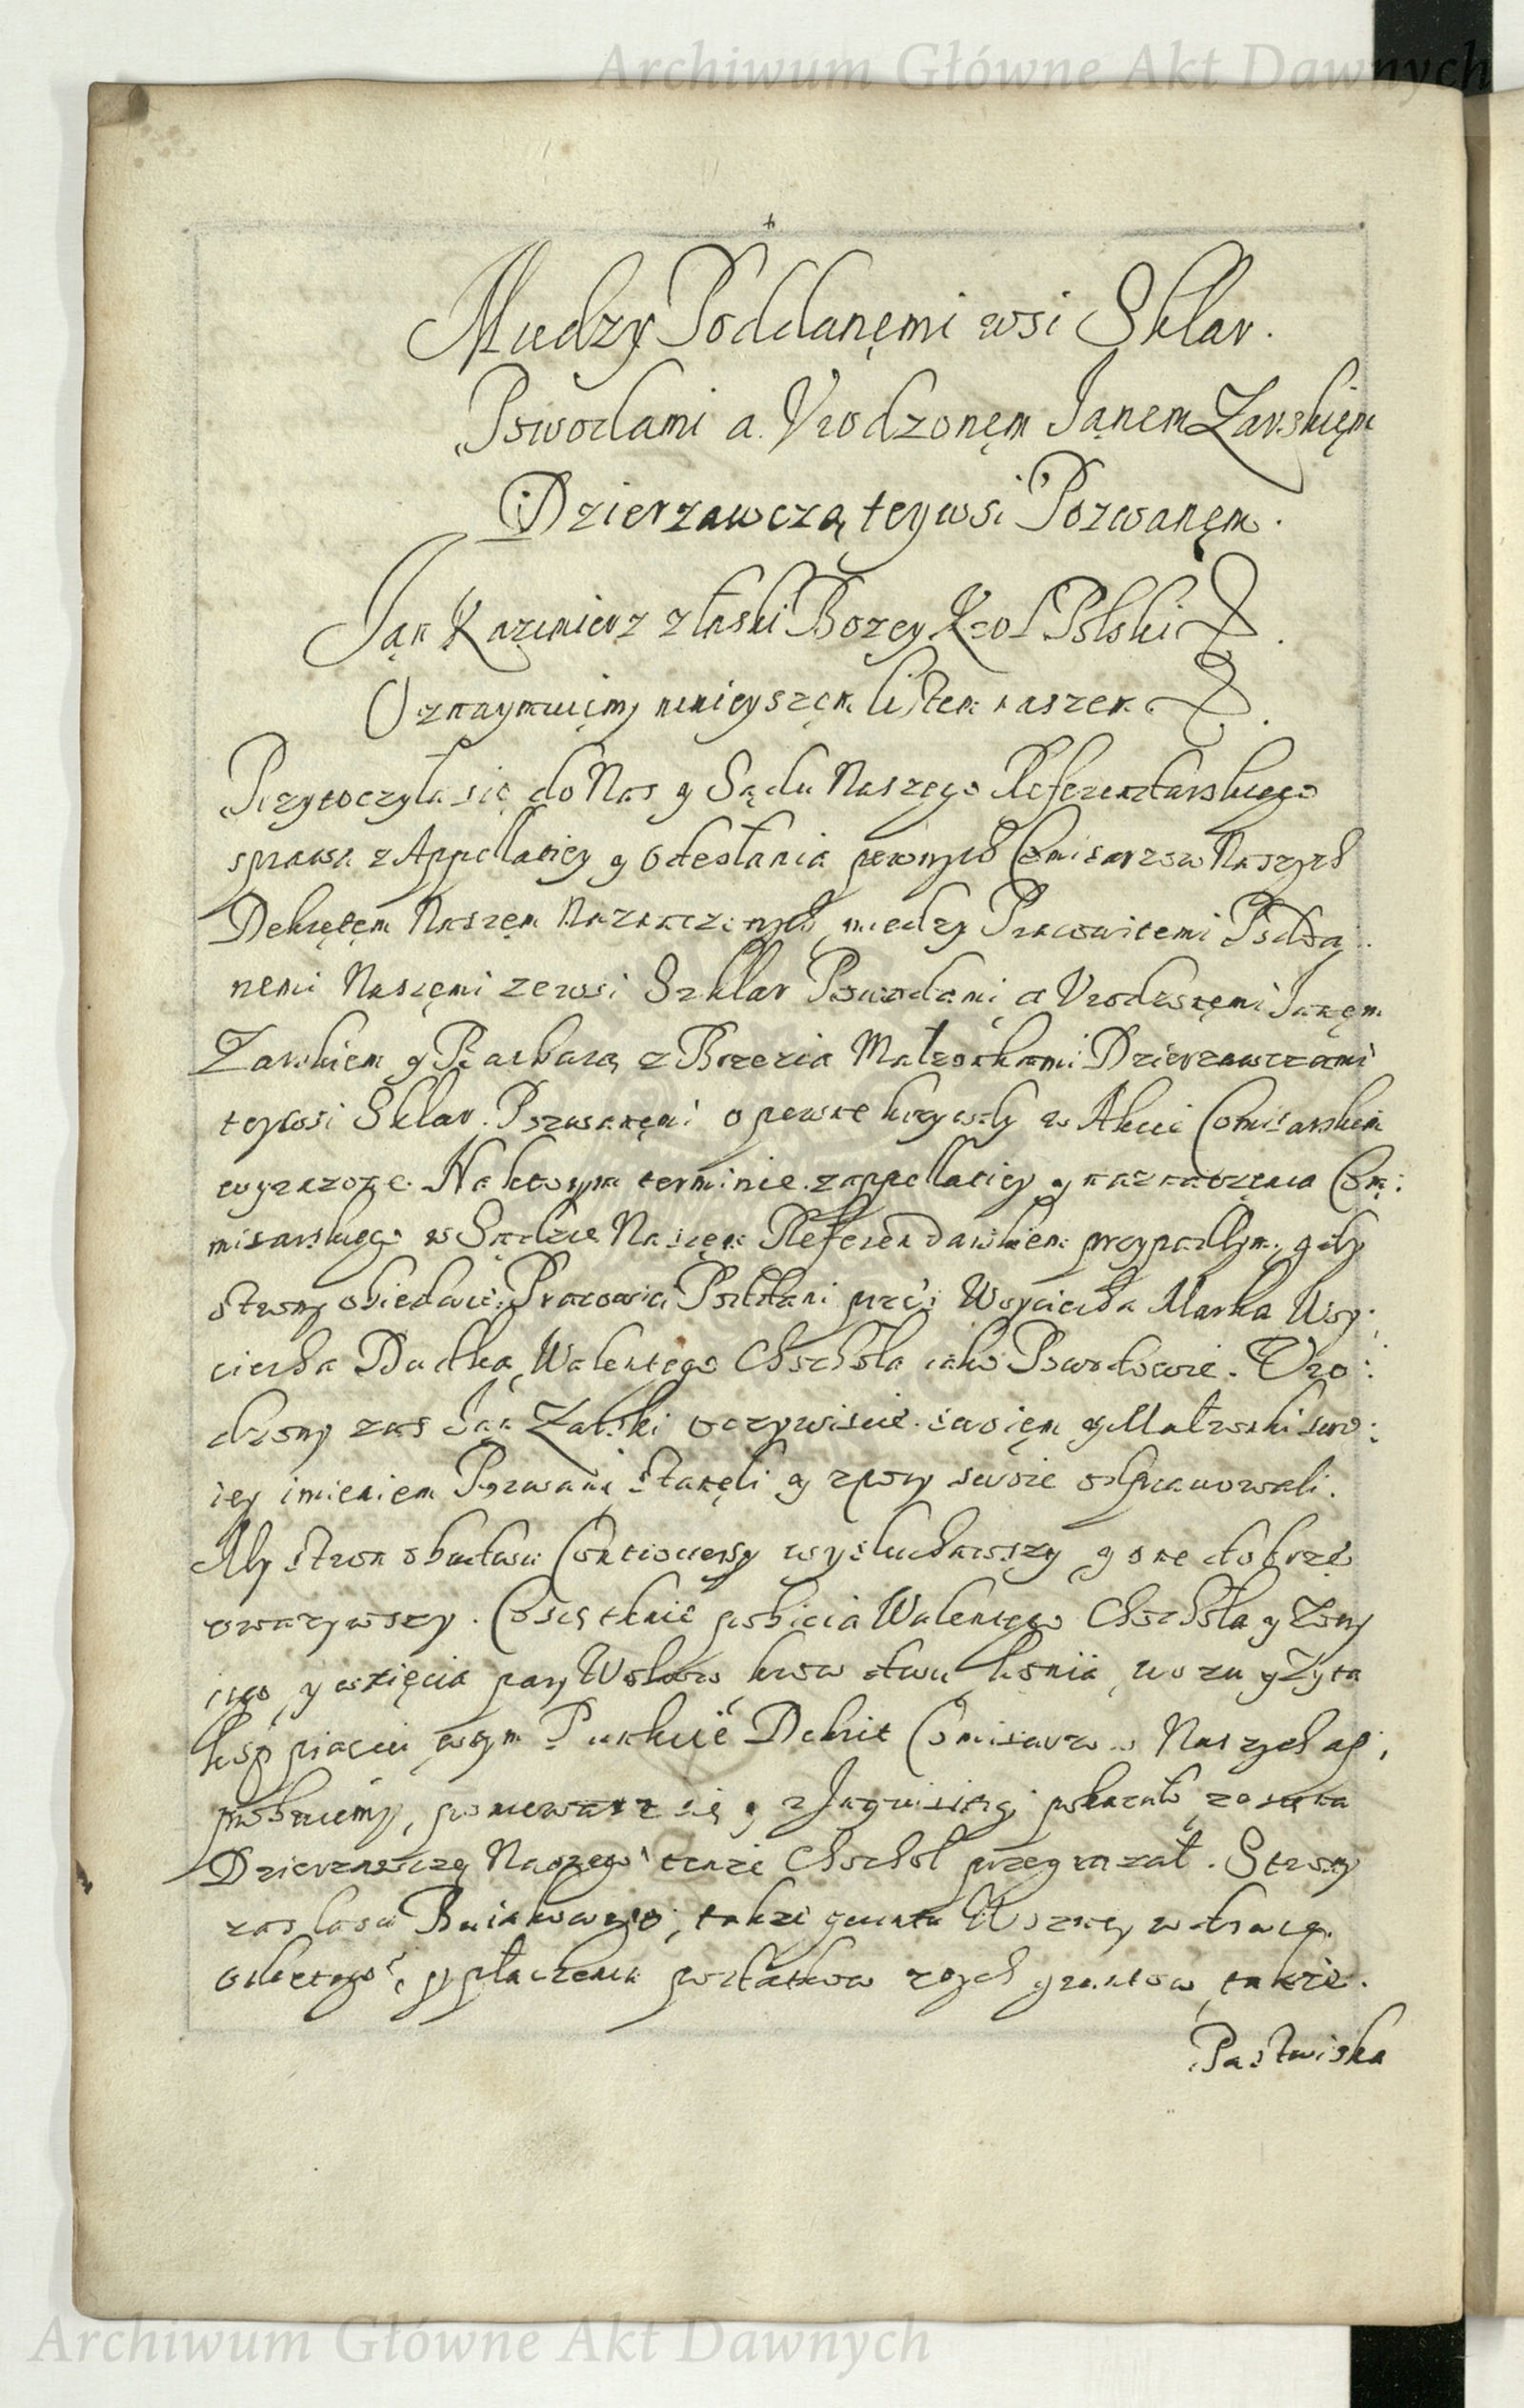 Archiwum Główne Akt Dawnych
Miedzy Poddanęmi wsi Sklar.
Powodami a Vrodzonęm Janem Zarskięm
Dzierzawczą teywsi Pozwanęm.
Jan Kazimierz z łaski Bozey Krol Polski &.
Oznaymuięmy ninieyszęm listem naszem &.
Przytoczyła się do Nas y Sądu Naszego Referendarskiego
sprawa z Appellatiey y odesłania pewnych Comisarzow Naszych
Dekretęm Naszęm Naznaczonych, miedzy Pracowitemi Podda
nemi Naszęmi zewsi Szklar Powodami, a Vrodzonęmi Janęm
Zarskiem y Barbarą z Brzezia Małzonkami Dzierzawczami
teywsi Sklar. Pozwanęmi o pewne krzywdy w Akcie Comisarskim
wyrazone. Na ktorym terminie zappellatiey y naznaczęnia Com:
misarskiego w Sądzie Naszęm Referendarskiem przypadłym, gdy
strony obiedwie, Pracowici Poddani przez Woyciecha Marka Woy:
ciecha Dudka, Walentego Chochoła iako Powodowie. Vro:
dzony zas Jan Zarski oczywiscie swoięm y Małzonki swo:
iey imieniem Pozwani stanęli y spory swoie odprawowali.
My stron obudwu Controuersy wysłuchawszy, y one dobrze
uwazywszy. Co się tknie pobicia Walentego Chochoła y Zony
iego, y wzięcia pary Wołow, krow dwu, konia, wozu y Zyta
kop piąciu, wtym Punkcie Dekret Comisarzow Naszych ap:
probuiemy, poniewasz się y z Inquisitiey pokazało, ze na
Dzierzawczę Naszego tenze Chochoł przegrazał. Strony
zas lasu, takze gruntu
odiętego, y płaczenia podatkow ztych gruntow, takze.
Pastwiska
Archiwum Główne Akt Dawnych